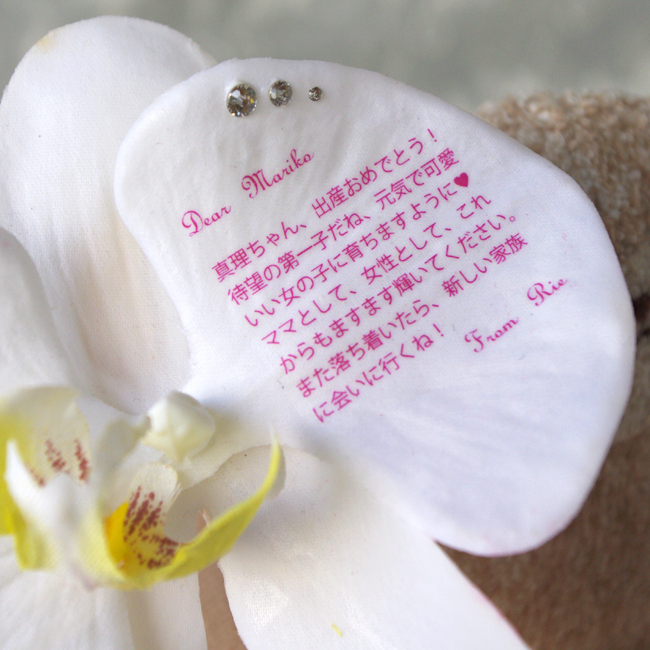 Dear Mariko
真理ちゃん、出産おめでとう！
待望の第一子だね、元気で可愛
いい女の子に育ちますように♥
ママとして、女性として、これ
からもますます輝いてください。
また落ち着いたら、新しい家族
に会いに行くね！
From Rie